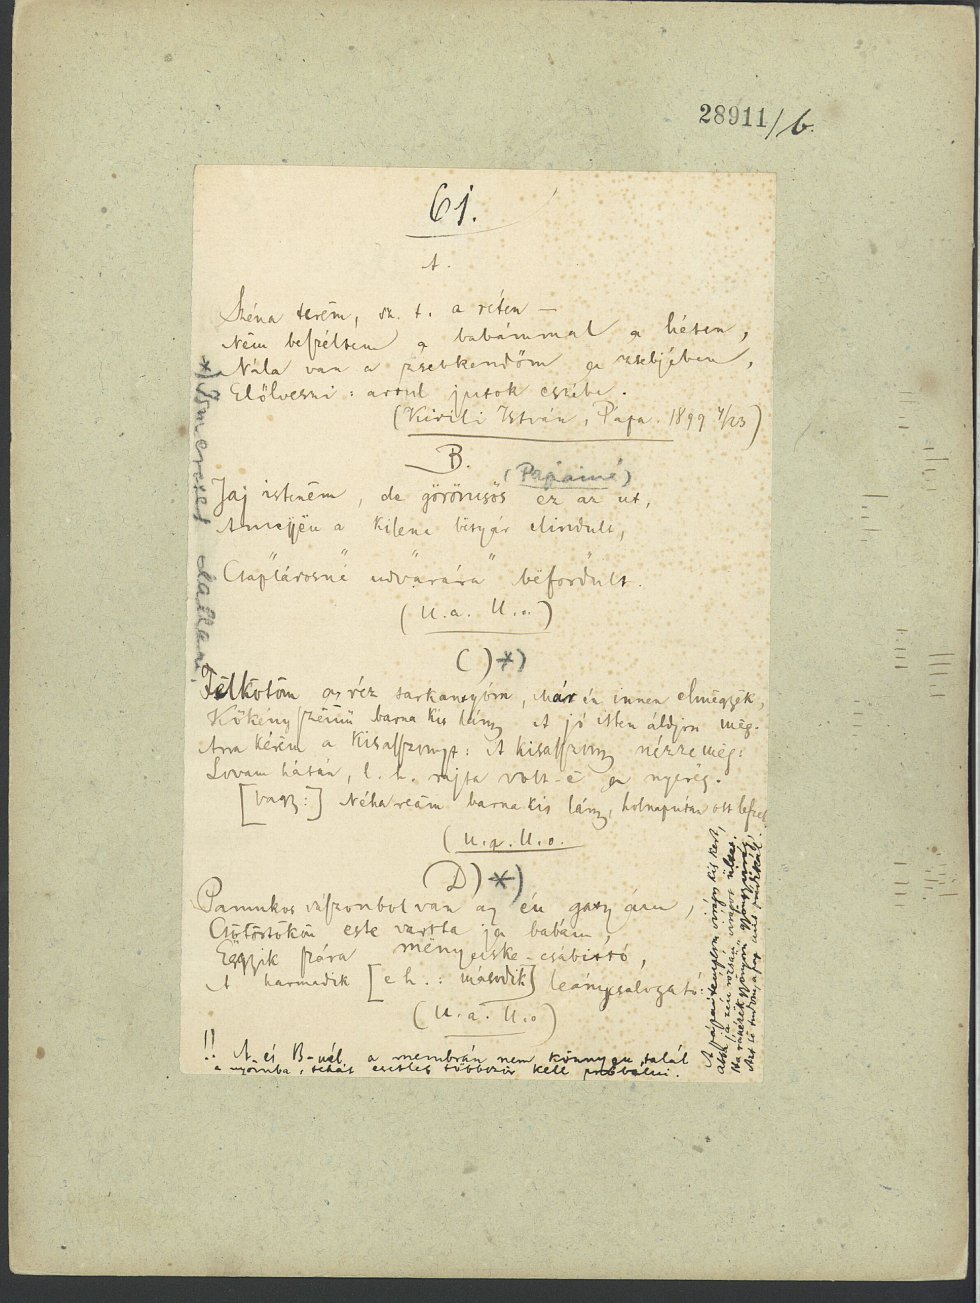 28911/b.
61.
A.
Széna terëm, sz. t. a réten —
Nem beszéltem a babámmal a héten,
Nála van a zsebkendőm a zsebjében,
Előlveszi: arrul jutok eszébe.
(Király István, Pápa. 1899 4/23)
B.
(Pápainé)
Jaj istenëm, de göröngyös ez az ut,
Amejjën a kilenc bëtyár elindult,
Csaplárosné udvarára béfordult.
(U.a. U.o.)
( )*)
Félkötöm az réz sarkantyóm, már én innen elmëgyëk,
Kökény szëmű barna kis lány A jó isten áldjon mëg.
Arra kérëm a kisasszonyt: A kisasszony nézze mëg:
Lovam hátán, l. h. rajta van-ë a nyerëg.
[vagy:] Néha reám barna kis lány, holnapután ott
(U.a. U.o.
(D)*)
Pamukos vászonbol van az én gatyám,
Csötörtökön este varrta ja babám,
Eggyik szára mënyecske-csábittó,
A harmadik [e h.: második] leánycsalogató.
(U.a. U.o)
!! A. és B-nél a membrán nem könnyen talál
a nyomba, tehát esetleg többször kell próbálni.
*) Ismereset dallam.
A pápai templom